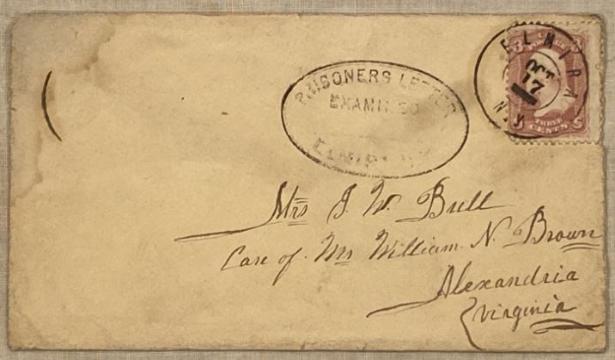 PRISONERS LETTER
EXAMINED
ELMIRA, N.Y.
ELMIRA
OCT
17
N.Y.
THREE
CENTS
Mrs J. W. Bull
Care of Mr William N. Brown
Alexandria
Virginia